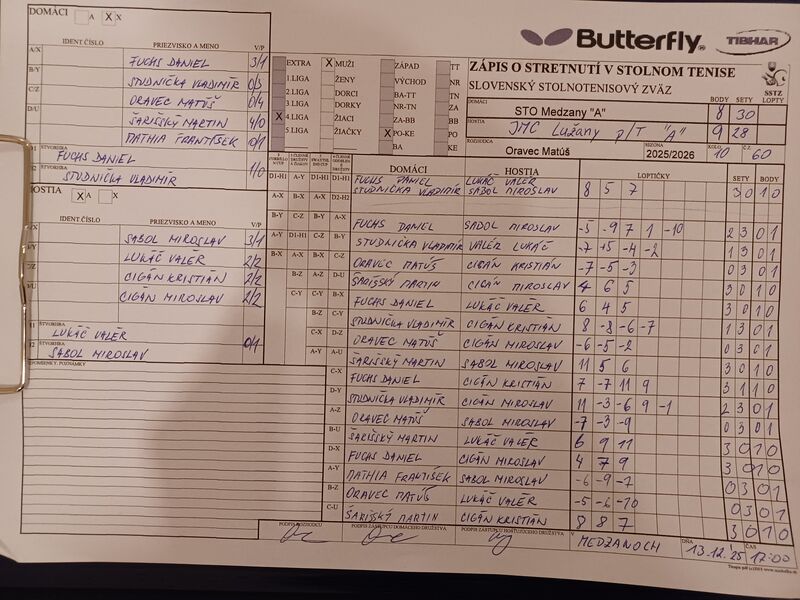 DOMÁCI A X X
Butterfly TIBHAR
IDENT ČÍSLO PRIEZVISKO A MENO V/P
A/X FUCHS DANIEL 3/1
B/Y STUDNIČKA VLADIMÍR 0/3
C/Z ORAVEC MATÚŠ 0/4
D/U ŠARIŠSKÝ MARTIN 4/0
MATHIA FRANTIŠEK 0/1
ŠTVORHRA
FUCHS DANIEL
STUDNIČKA VLADIMÍR 1/0
HOSTIA A X X
IDENT ČÍSLO PRIEZVISKO A MENO V/P
SABOL MIROSLAV 3/1
LUKÁČ VALÉR 2/2
CIGÁN KRISTIÁN 2/2
CIGÁN MIROSLAV 2/2
ŠTVORHRA
LUKÁČ VALÉR
ŠTVORHRA 0/1
SABOL MIROSLAV
EXTRA X MUŽI ZÁPAD TT
1.LIGA ŽENY VÝCHOD NR
2.LIGA DORCI BA-TT TN
3.LIGA DORKY NR-TN ZA
X 4.LIGA ŽIACI ZA-BB BB
5.LIGA ŽIAČKY X PO-KE PO
BA KE
ZÁPIS O STRETNUTÍ V STOLNOM TENISE
SLOVENSKÝ STOLNOTENISOVÝ ZVÄZ
SSTZ
BODY SETY LOPTY
DOMÁCI STO Medzany "A" 8 30
HOSTIA JMC Lužany p/T "A" 9 28
ROZHODCA Oravec Matúš
SEZÓNA 2025/2026 KOLO 10 Č.Z. 60
DOMÁCI HOSTIA LOPTIČKY SETY BODY
FUCHS DANIEL LUKÁČ VALÉR
STUDNIČKA VLADIMÍR SABOL MIROSLAV 8 5 7 3 0 1 0
A-X FUCHS DANIEL SABOL MIROSLAV -5 -9 7 1 -10 2 3 0 1
B-Y STUDNIČKA VLADIMÍR VALÉR LUKÁČ -7 +5 -4 -2 1 3 0 1
C-Z ORAVEC MATÚŠ CIGÁN KRISTIÁN -7 -5 -3 0 3 0 1
D-U ŠARIŠSKÝ MARTIN CIGÁN MIROSLAV 4 6 5 3 0 1 0
B-X FUCHS DANIEL LUKÁČ VALÉR 6 4 5 3 0 1 0
STUDNIČKA VLADIMÍR CIGÁN KRISTIÁN 8 -8 -6 -7 1 3 0 1
Z-D ORAVEC MATÚŠ CIGÁN MIROSLAV -6 -5 -2 0 3 0 1
A-U ŠARIŠSKÝ MARTIN SABOL MIROSLAV 11 5 6 3 0 1 0
C-X FUCHS DANIEL CIGÁN KRISTIÁN 7 -7 11 9 3 1 1 0
D-Y STUDNIČKA VLADIMÍR CIGÁN MIROSLAV 11 -3 -6 9 -1 2 3 0 1
A-Z ORAVEC MATÚŠ SABOL MIROSLAV -7 -3 -9 0 3 0 1
B-U ŠARIŠSKÝ MARTIN LUKÁČ VALÉR 6 9 11 3 0 1 0
D-X FUCHS DANIEL CIGÁN MIROSLAV 4 7 9 3 0 1 0
A-Y MATHIA FRANTIŠEK SABOL MIROSLAV 0 3 0 1
B-Z ORAVEC MATÚŠ LUKÁČ VALÉR -5 -6 -10 0 3 0 1
C-U ŠARIŠSKÝ MARTIN CIGÁN KRISTIÁN 8 8 7 3 0 1 0
PRIPOMIENKY, POZNÁMKY
PODPIS ROZHODCU PODPIS ZÁSTUPCU DOMÁCEHO DRUŽSTVA PODPIS ZÁSTUPCU HOSŤUJÚCEHO DRUŽSTVA
V MEDZANOCH DŇA 13.12.25 ČAS 17:00